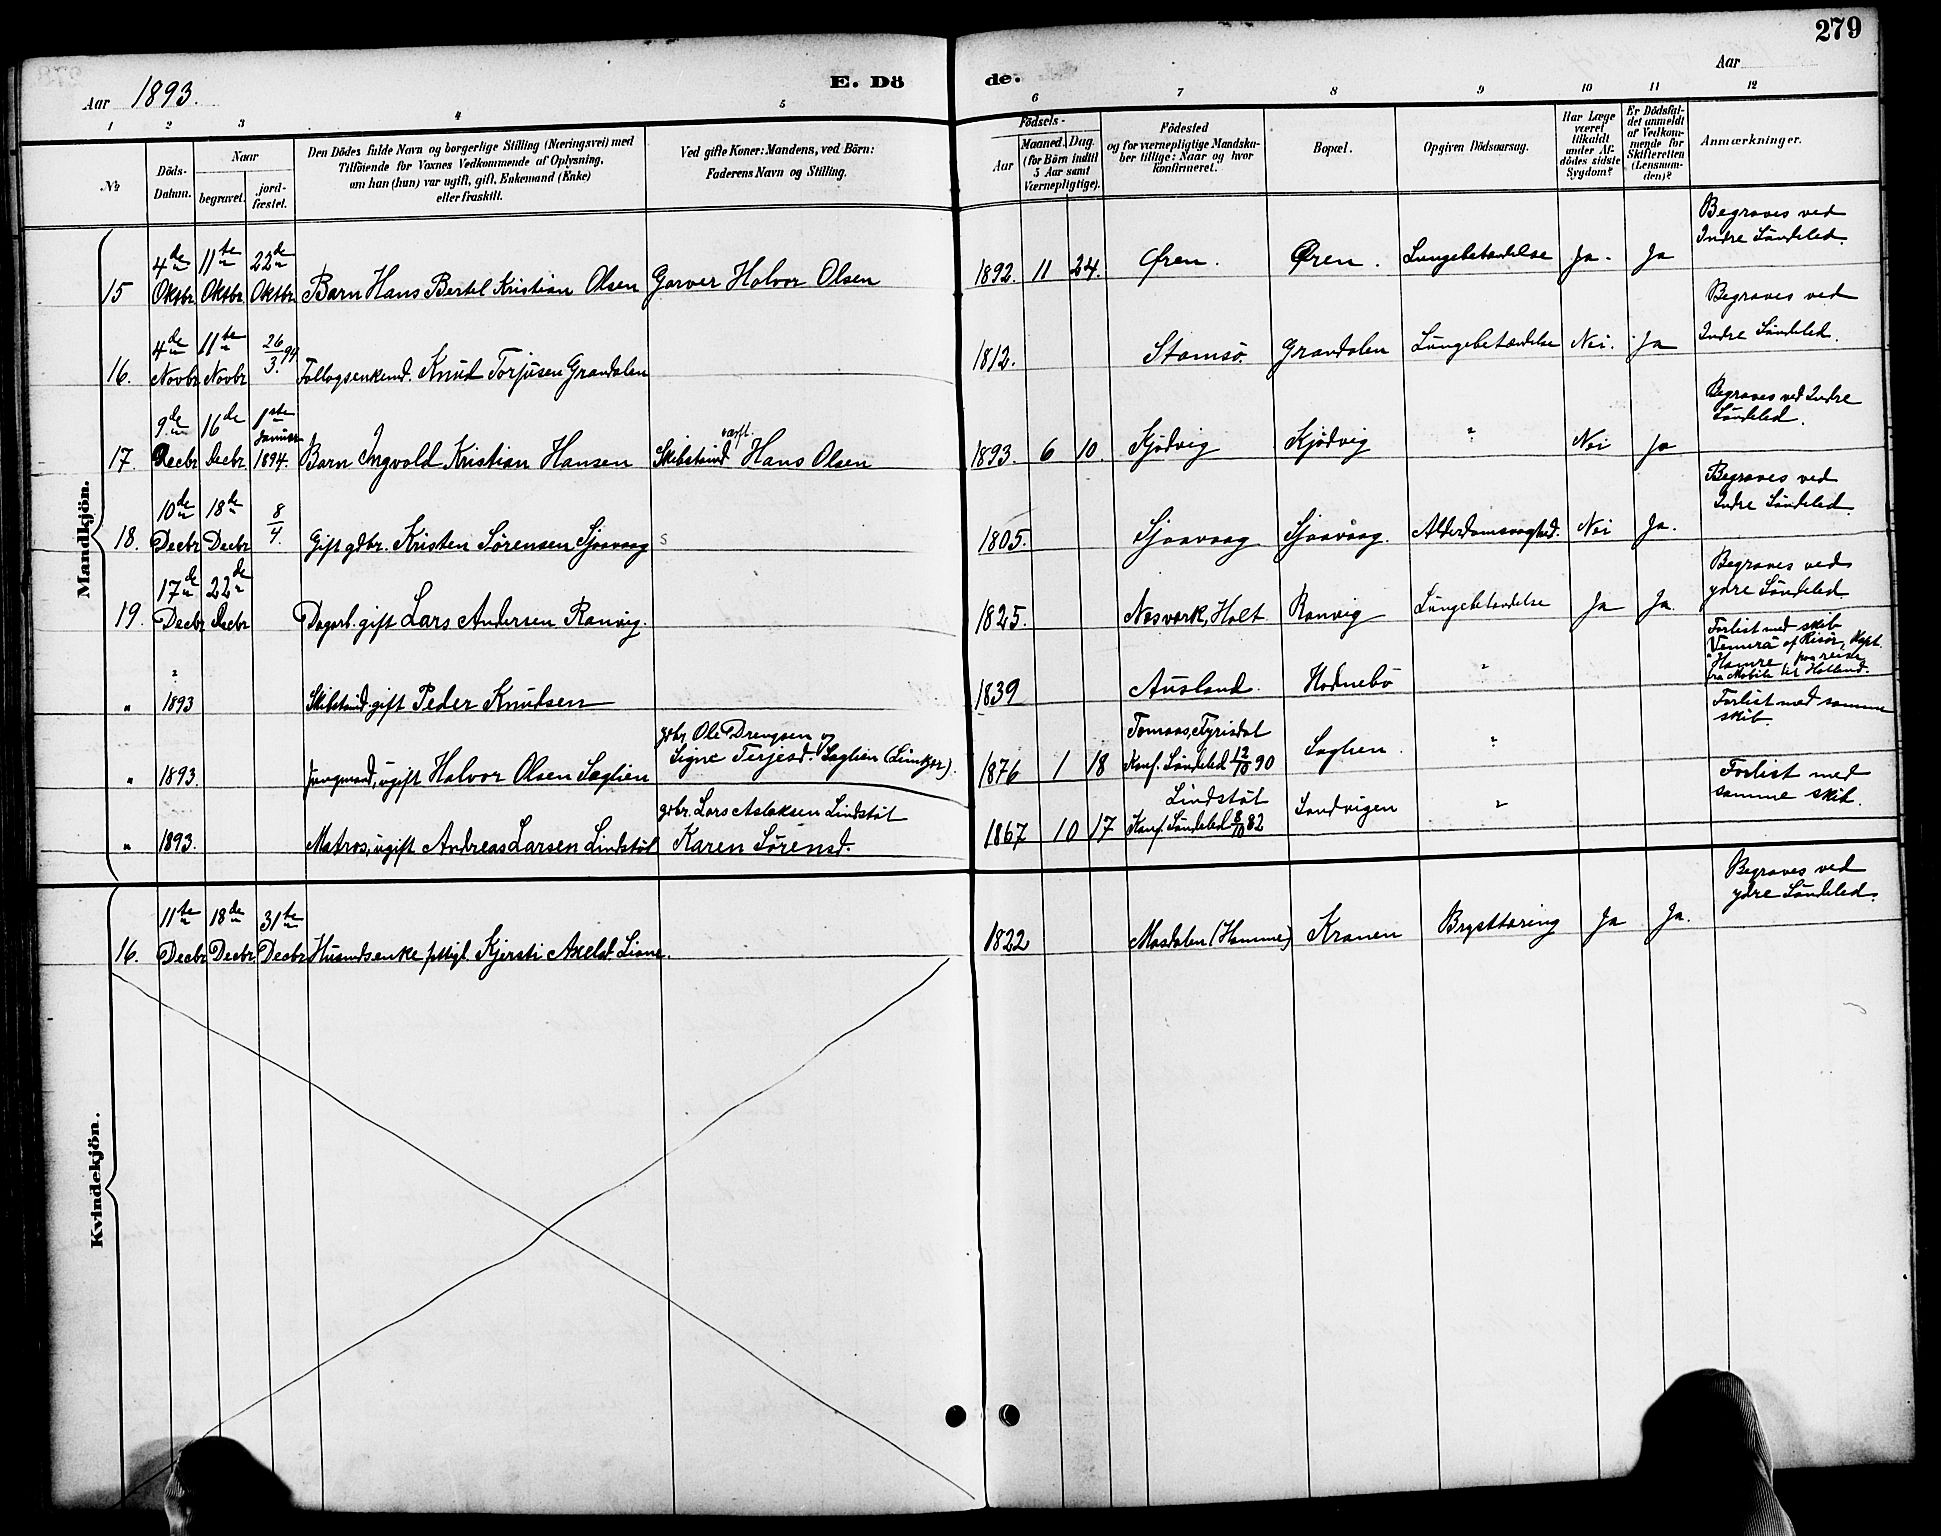 279
Aar 1893.
E. Dö
de.
Aar
1 2 3 4 5 6 7 8 9 10 11 12
No
Döds-Datum.
Naar
begravet.
jord-fæstet.
Den Dödes fulde Navn og borgerlige Stilling (Næringsvei) med
Tilföiende for Voxnes Vedkommende af Oplysning,
om han (hun) var ugift, gift, Enkemand (Enke)
eller fraskilt.
Ved gifte Koner: Mandens, ved Börn:
Faderens Navn og Stilling.
Födsels-
Aar
Maaned. Dag.
(for Börn indtil
5 Aar samt
Værnepligtige).
Födested
og for værnepligtige Mandska-
ber tillige: Naar og hvor
konfirmeret.
Bopæl.
Opgiven Dödsaarsag.
Har Læge
været
tilkaldt
under Af-
dödes sidste
Sygdom?
Er Dödsfal-
det anmeldt
af Vedkom-
mende for
Skifteretten
(Lensman-
den)?
Anmærkninger.
Mandkjön.
15 4de Oktbr 11te Oktbr 22de Oktbr Barn Hans Bertel Kristian Olsen Garver Halvor Olsen 1892. 11 24. Øren. Øren. Lungebetændelse Ja. Ja Begraves ved Indre Söndeled.
16. 4de Novbr 11te Novbr 26/3.94 Follogsenkemd. Knud Torjusen Grandalen 1812. Stamsö. Grandalen Lungebetændelse Nei. Ja Begraves ved Indre Söndeled.
17 9de Decbr 16de Decbr 1ste Januar 1894. Barn Ingvald Kristian Hansen Skibstmd værft. Hans Olsen 1893. 6 10 Kjödvig Kjödvig " Nei Ja Begraves ved Indre Söndeled.
18. 10de Decbr 18de Decbr 8/4. Gift gdbr. Kristen Sörensen Sjaavaag 1805. Sjaavaag Sjaavaag. Alderdomssvaghed. Nei Ja. Begraves ved Indre Söndeled.
19. 17de Decbr 22de Decbr Dagarb. gift Lars Andersen Ranvig. 1825. Nesverk, Holt Ranvig Lungebetændelse Ja Ja. Begraves ved ydre Söndeled
" 1893 Skibstmd. gift Peder Knudsen 1839 Ausland. Hödnebö " Forlist med skib "Venura" af Risör, Kapt. Hamre, paa reise fra Mobile til Holland.
" 1893. Jungmand, ugift Halvor Olsen Saglien gbr. Ole Drengsen og Signe Terjesd. Saglien 1876 1 18 Tyrisdal Konf. Söndeled 12/10 90 Saglien. " Forlist med samme skib.
" 1893. Matros, ugift Andreas Larsen Lindstöl gbr. Lars Aslaksen Lindstöl Karen Sörensd. 1867 10 17 Lindstöl Konf. Söndeled 8/10 82 Sandvigen " Forlist med samme skib.
Kvindekjön.
16. 11te Decbr 18de Decbr. 31te Decbr Husmdsenke fattigl. Kjersti Axelsd. Liane. 1822 Masdalen (Hamme) Kranen Brysttæring Ja Ja. Begraves ved ydre Söndeled.